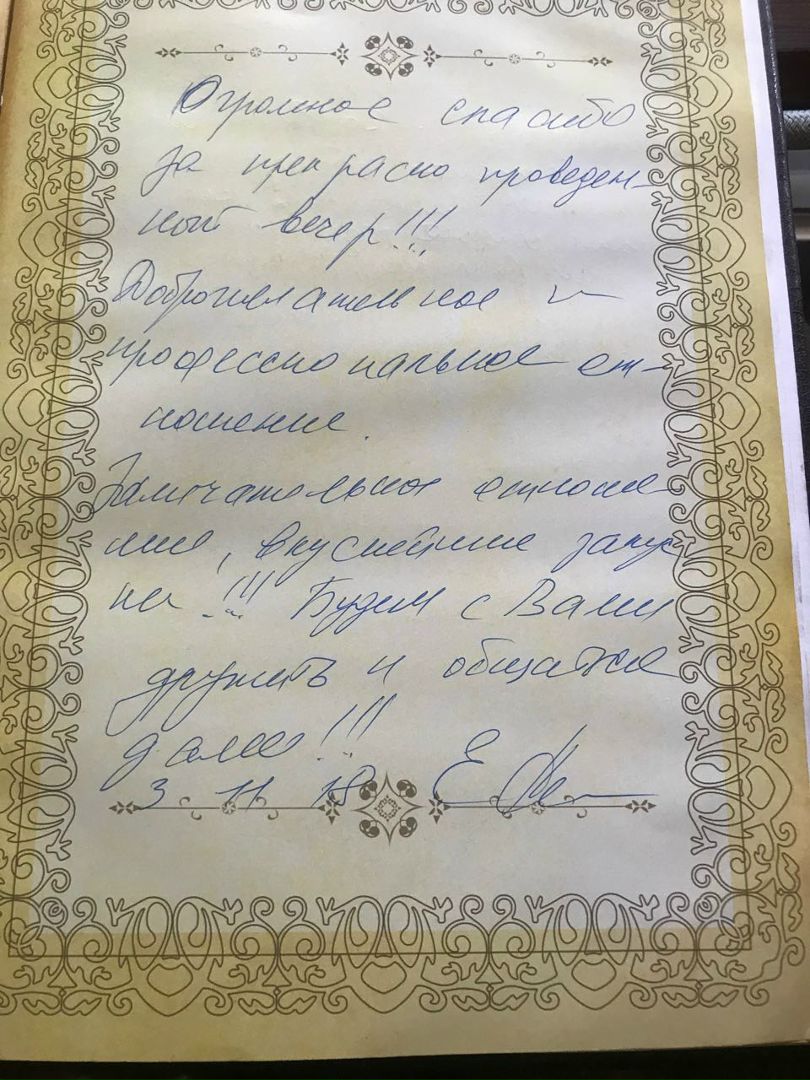 Огромное спасибо
за прекрасно проведен-
ный вечер!!!
Доброжелательное и
профессиональное от-
ношение.
Замечательное отноше
ние, вкуснейшие закус
ки!!! Будем с Вами
дружить и общаться
далее!!!
3 11 18 Е